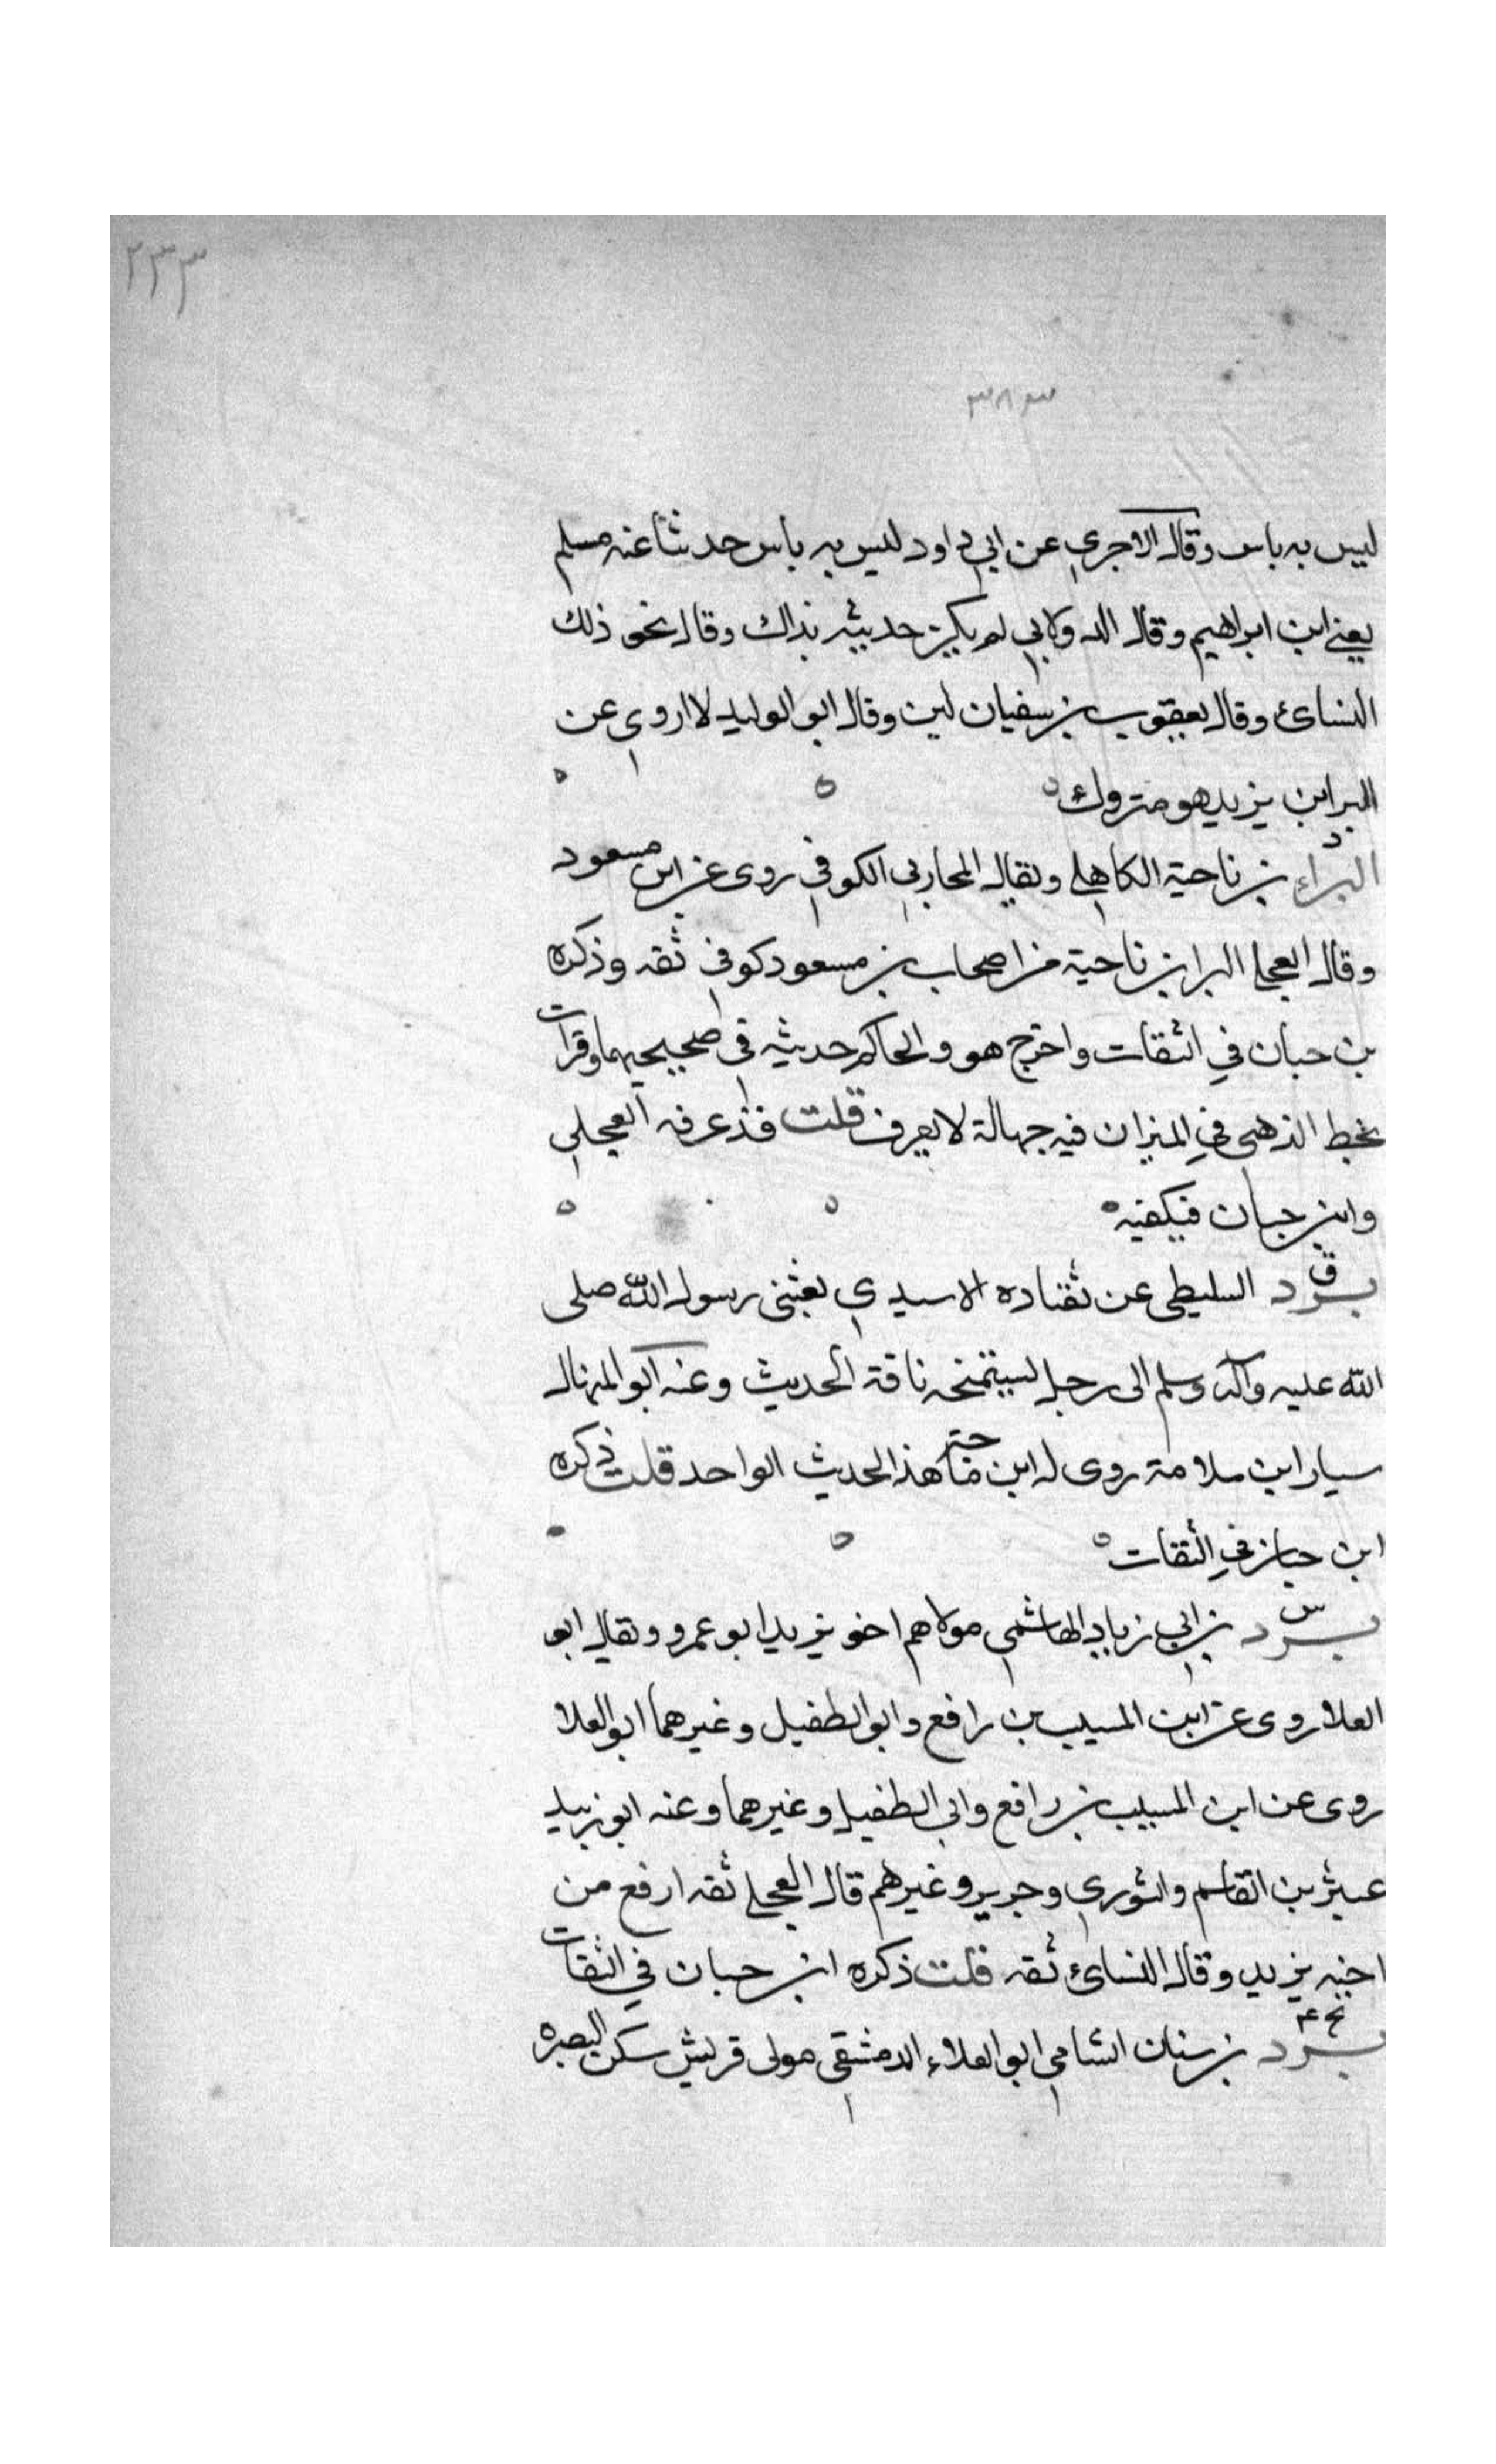 ٢٣٣
٣٨٣
ليس به باس وقال الاجري عن ابي داود ليس به باس حدثنا عنه مسلم
يعني ابن ابراهيم وقال الدولابي لم يكن حديثه بذاك وقال نحو ذلك
النسائ وقال يعقوب بن سفيان لين وقال ابو الوليد لا اروي عن
البرا ابن يزيد هو متروك ه
د
البراء بن ناحية الكاهلي ويقال المحاربي الكوفي روى عن ابن مسعود
وقال العجلي البرا بن ناحية من اصحاب بن مسعود كوفي ثقه وذكره
بن حبان في الثقات واخرج هو والحاكم حديثه في صحيحيهما وقرات
بخط الذهبي في الميزان فيه جهالة لا يعرف قلت قد عرفه العجلي
وابن حبان فيكفيه ه
ق
برد السليطي عن نقاده الاسيدي بعثني رسول الله صلى
الله عليه وآله وسلم الى رجل يستمنحه ناقة الحديث وعنه ابو المنهال
سيار ابن سلامة روى له ابن ماجة هذا الحديث الواحد قلت ذكره
ابن حبان في الثقات ه
س
برد بن ابي زياد الهاشمي مولاهم اخو يزيد ابو عمرو ويقال ابو
العلا روى عن ابن المسيب بن رافع وابو الطفيل وغيرهما ابو العلا
روى عن ابن المسيب بن رافع وابي الطفيل وغيرهما وعنه ابو زبيد
عبثر بن القاسم والثوري وجرير وغيرهم قال العجلي ثقه ارفع من
اخيه يزيد وقال النسائ ثقه قلت ذكره ابن حبان في الثقات
بخ ٤
برد بن سنان الشامي ابو العلاء الدمشقي مولى قريش سكن البصره